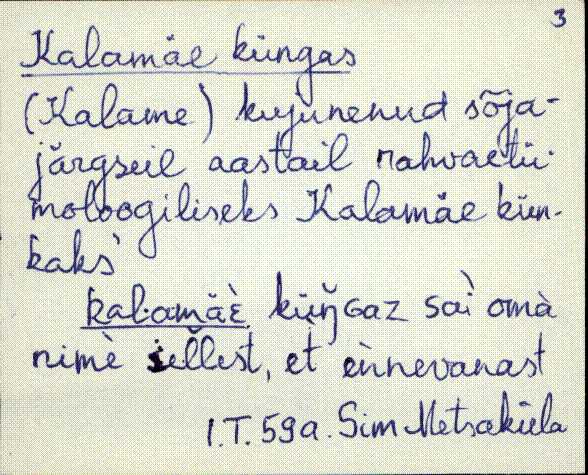 3
Kalamäe küngas
(Kalame) kujunenud sõja-
järgseil aastail rahvaetü-
moloogiliseks Kalamäe kün-
kaks
kalamäè küŋGaz saì omà
nimè sellest, et ennevanast
I.T. 59a. Sim Metsaküla